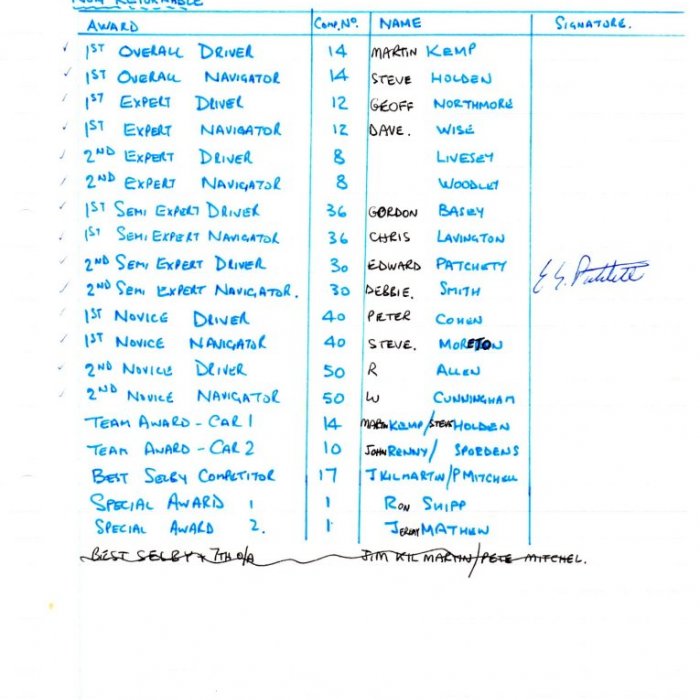 NON RETURNABLE
AWARD COMP. NO. NAME SIGNATURE.
1ST OVERALL DRIVER 14 MARTIN KEMP
1ST OVERALL NAVIGATOR 14 STEVE HOLDEN
1ST EXPERT DRIVER 12 GEOFF NORTHMORE
1ST EXPERT NAVIGATOR 12 DAVE. WISE
2ND EXPERT DRIVER 8 LIVESEY
2ND EXPERT NAVIGATOR 8 WOODLEY
1ST SEMI EXPERT DRIVER 36 GORDON BASEY
1ST SEMI EXPERT NAVIGATOR 36 CHRIS LAVINGTON
2ND SEMI EXPERT DRIVER 30 EDWARD PATCHETT
2ND SEMI EXPERT NAVIGATOR. 30 DEBBIE. SMITH
1ST NOVICE DRIVER 40 PETER COHEN
1ST NOVICE NAVIGATOR 40 STEVE. MORETON
2ND NOVICE DRIVER 50 R ALLEN
2ND NOVICE NAVIGATOR 50 W CUNNINGHAM
TEAM AWARD - CAR 1 14 MARTIN KEMP/STEVE HOLDEN
TEAM AWARD - CAR 2 10 JOHN RENNY/ SPORDENS
BEST SELBY COMPETITOR 17 J KILMARTIN/P MITCHELL
SPECIAL AWARD 1 1 RON SHIPP
SPECIAL AWARD 2. 1 JEREMY MATHEW
BEST SELBY + 7TH O/A JIM KILMARTIN/PETE MITCHEL.